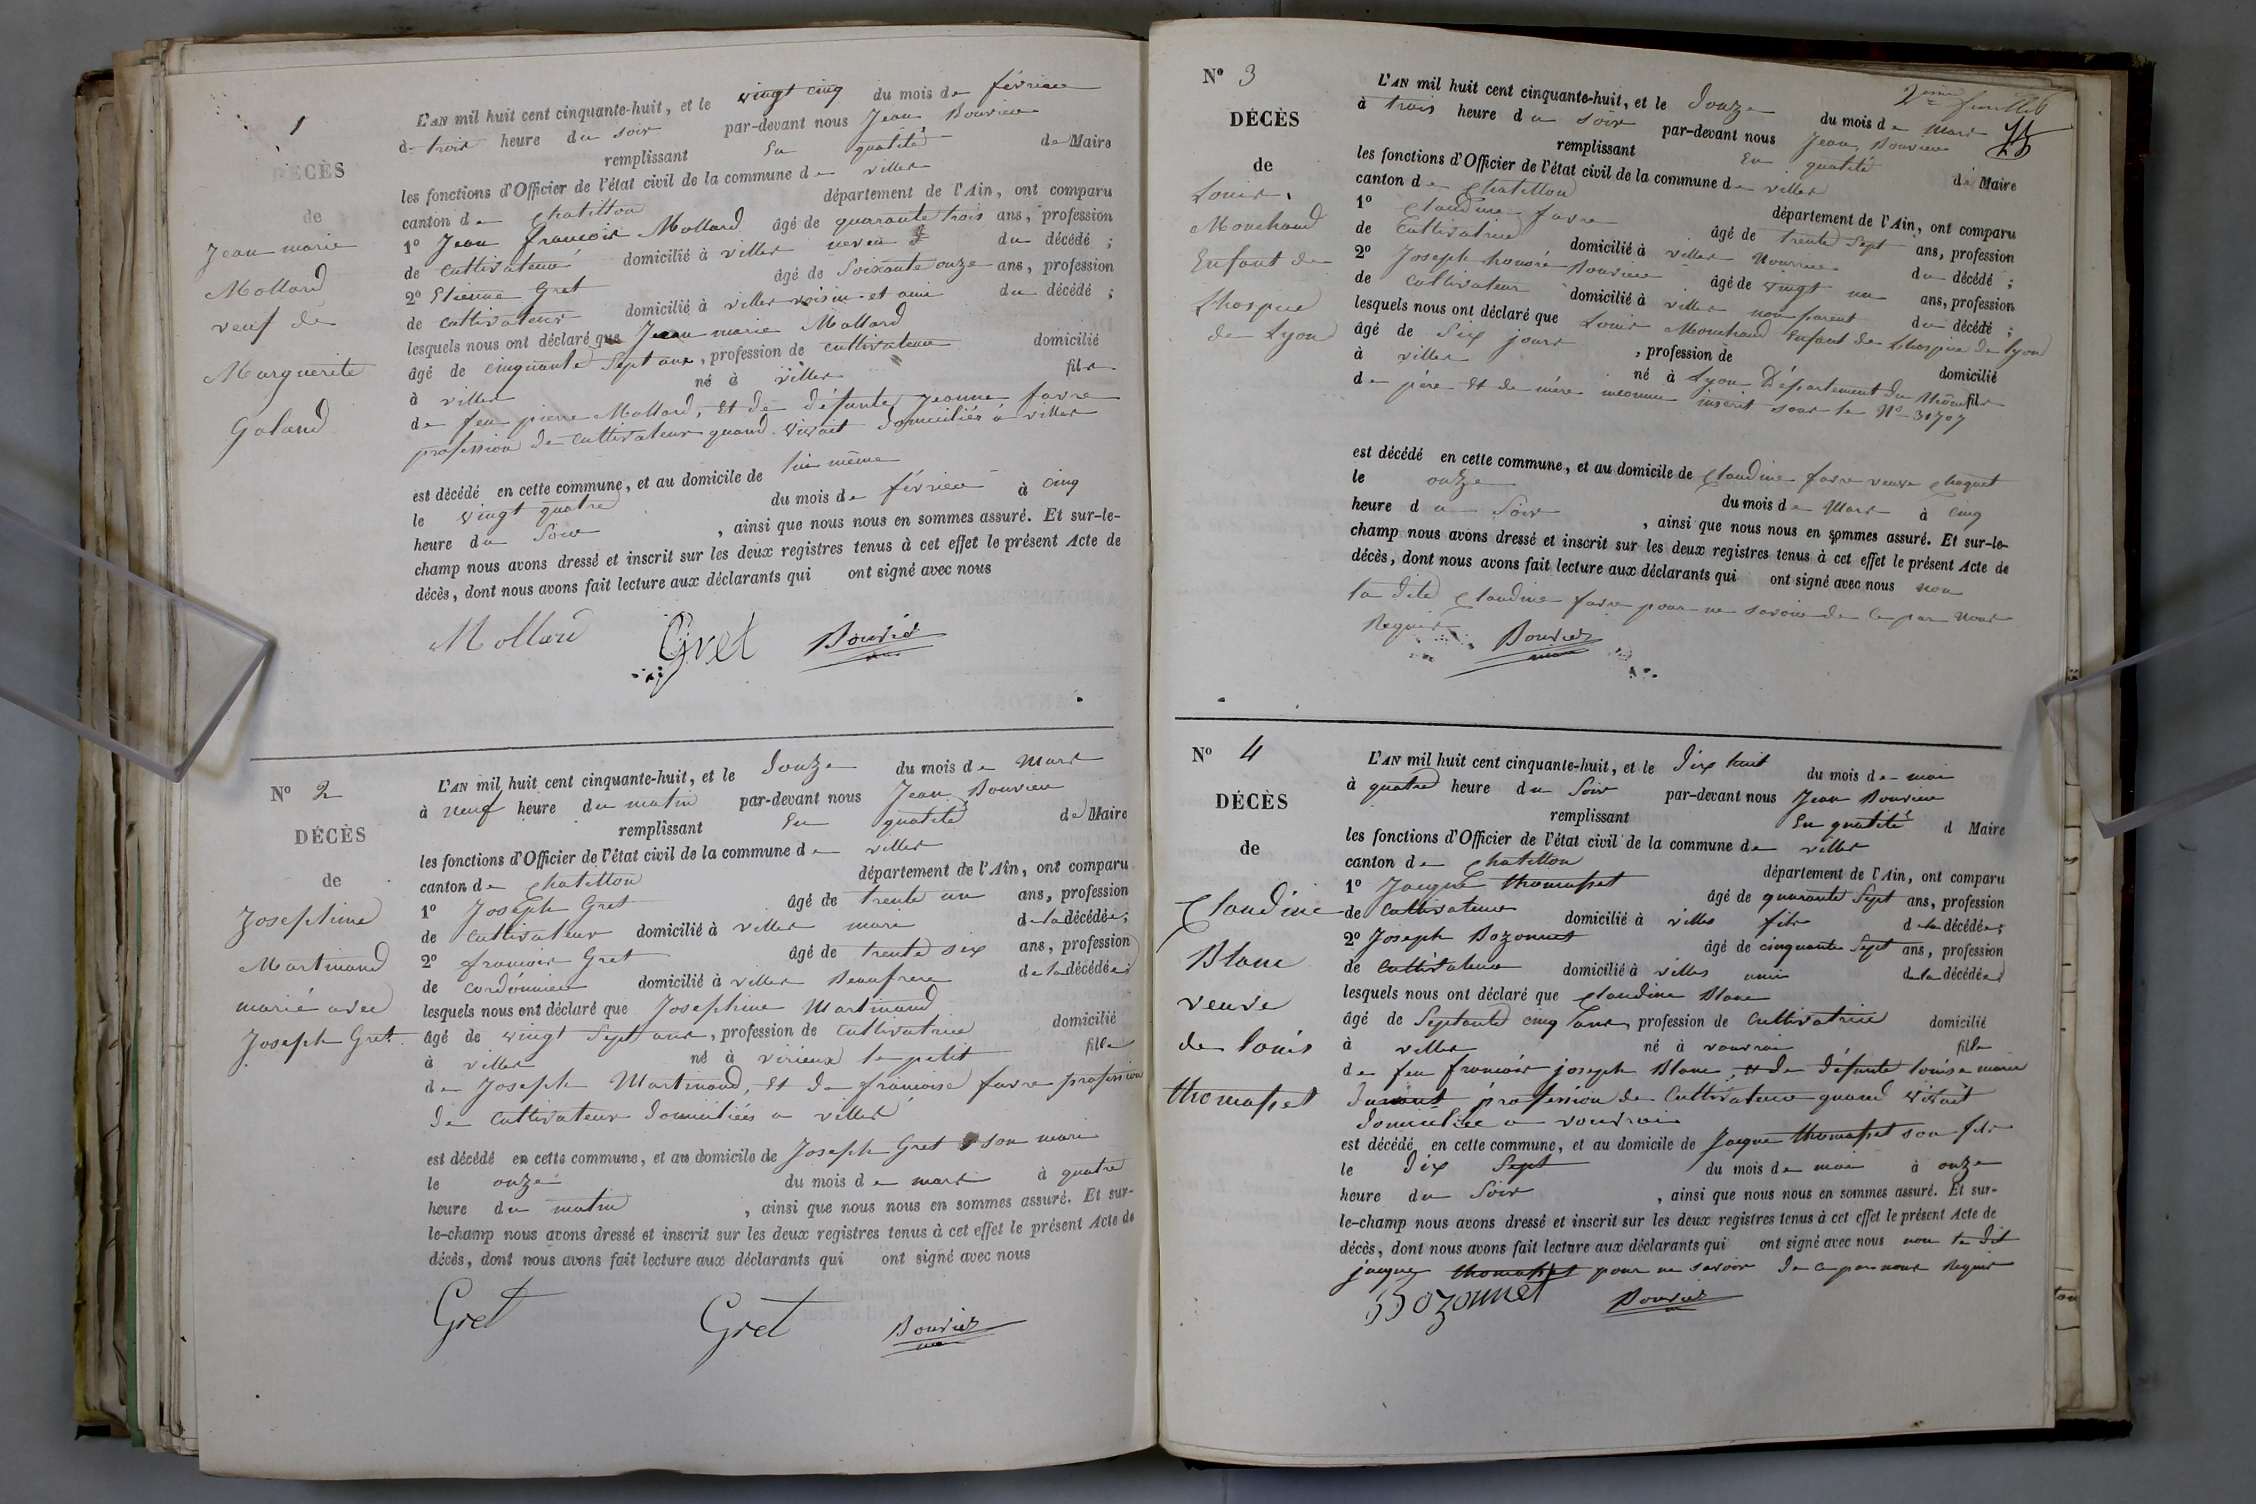 1
DÉCÈS
de
Jean marie
Mollard
veuf de
Marguerite
Galand
L'AN mil huit cent cinquante-huit, et le vingt cinq du mois de février
à trois heure du soir par-devant nous Jean Bouvier
remplissant En qualité de Maire
les fonctions d'Officier de l'état civil de la commune de villes
canton de Chatillon département de l'Ain, ont comparu
1º Jean francois Mollard âgé de quarante trois ans, profession
de cultivateur domicilié à villes neveu du décédé ;
2º Etienne Gret âgé de Soixante onze ans, profession
de cultivateur domicilié à villes voisin et ami du décédé ;
lesquels nous ont déclaré que Jean marie Mollard
âgé de cinquante Sept ans, profession de cultivateur domicilié
à villes né à villes fils
de feu pierre Mollard, et de défunte Jeanne favre
profession de cultivateur quand vivait domiciliés à villes
est décédé en cette commune, et au domicile de lui même
le vingt quatre du mois de février à cinq
heure du Soir , ainsi que nous nous en sommes assuré. Et sur-le-
champ nous avons dressé et inscrit sur les deux registres tenus à cet effet le présent Acte de
décès, dont nous avons fait lecture aux déclarants qui ont signé avec nous
Mollard Gret Bouvier
Nº 2
DÉCÈS
de
Josephine
Martinand
marié avec
Joseph Gret
L'AN mil huit cent cinquante-huit, et le douze du mois de Mars
à neuf heure du matin par-devant nous Jean Bouvier
remplissant En qualité de Maire
les fonctions d'Officier de l'état civil de la commune de villes
canton de Chatillon département de l'Ain, ont comparu
1º Joseph Gret âgé de trente un ans, profession
de cultivateur domicilié à villes mari de la décédée ;
2º francois Gret âgé de trente six ans, profession
de cordonnier domicilié à villes Beaufrere de la décédée ;
lesquels nous ont déclaré que Josephine Martinand
âgé de vingt Sept ans, profession de Cultivatrice domicilié
à villes né à virieux le petit fille
de Joseph Martinand, Et de francoise favre profession
de cultivateur domiciliées a villes
est décédé en cette commune, et au domicile de Joseph Gret son mari
le onze du mois de mars à quatre
heure du matin , ainsi que nous nous en sommes assuré. Et sur-
le-champ nous avons dressé et inscrit sur les deux registres tenus à cet effet le présent Acte de
décès, dont nous avons fait lecture aux déclarants qui ont signé avec nous
Gret Gret Bouvier
2eme feuillet
Nº 3
DÉCÈS
de
Louis
Mouchand
Enfant de
Lhospice
de Lyon
L'AN mil huit cent cinquante-huit, et le douze du mois de mars
à trois heure du soir par-devant nous Jean Bouvier
remplissant En qualité de Maire
les fonctions d'Officier de l'état civil de la commune de villes
canton de Chatillon département de l'Ain, ont comparu
1º Claudine favre âgé de trente Sept ans, profession
de Cultivatrice domicilié à villes Nourrice du décédé ;
2º Joseph honoré Bouvier âgé de vingt un ans, profession
de cultivateur domicilié à villes non parent du décédé ;
lesquels nous ont déclaré que Louis Mouchand Enfant de Lhospice de Lyon
âgé de Six jours , profession de domicilié
à villes né à Lyon Département du Rhône fils
de père et de mère inconnu inscrit sous le Nº 31707
est décédé en cette commune, et au domicile de Claudine favre veuve Chaguet
le onze du mois de Mars à cinq
heure du Soir , ainsi que nous nous en sommes assuré. Et sur-le-
champ nous avons dressé et inscrit sur les deux registres tenus à cet effet le présent Acte de
décès, dont nous avons fait lecture aux déclarants qui ont signé avec nous non
la dite Claudine favre pour ne savoir de ce par nous
Requis Bouvier
Nº 4
DÉCÈS
de
Claudine
Blanc
veuve
de louis
thomasset
L'AN mil huit cent cinquante-huit, et le dix huit du mois de mai
à quatre heure du Soir par-devant nous Jean Bouvier
remplissant En qualité d Maire
les fonctions d'Officier de l'état civil de la commune de villes
canton de Chatillon département de l'Ain, ont comparu
1º Jacque thomasset âgé de quarante Sept ans, profession
de Cultivateur domicilié à villes fils de la décédée ;
2º Joseph Bozonnet âgé de cinquante Sept ans, profession
de Cultivateur domicilié à villes ami de la décédée
lesquels nous ont déclaré que Claudine Blanc
âgé de Septante cinq ans, profession de Cultivatrice domicilié
à villes né à vouvrai fille
de feu francois joseph Blanc, et de défunte louise marie
profession de Cultivateur quand vivait
domiciliée a vouvrai
est décédé en cette commune, et au domicile de Jacque thomasset son fils
le dix Sept du mois de mai à onze
heure du Soir , ainsi que nous nous en sommes assuré. Et sur-
le-champ nous avons dressé et inscrit sur les deux registres tenus à cet effet le présent Acte de
décès, dont nous avons fait lecture aux déclarants qui ont signé avec nous non le dit
jacque thomasset pour ne savoir de ce par nous Requis
Bozonnet Bouvier